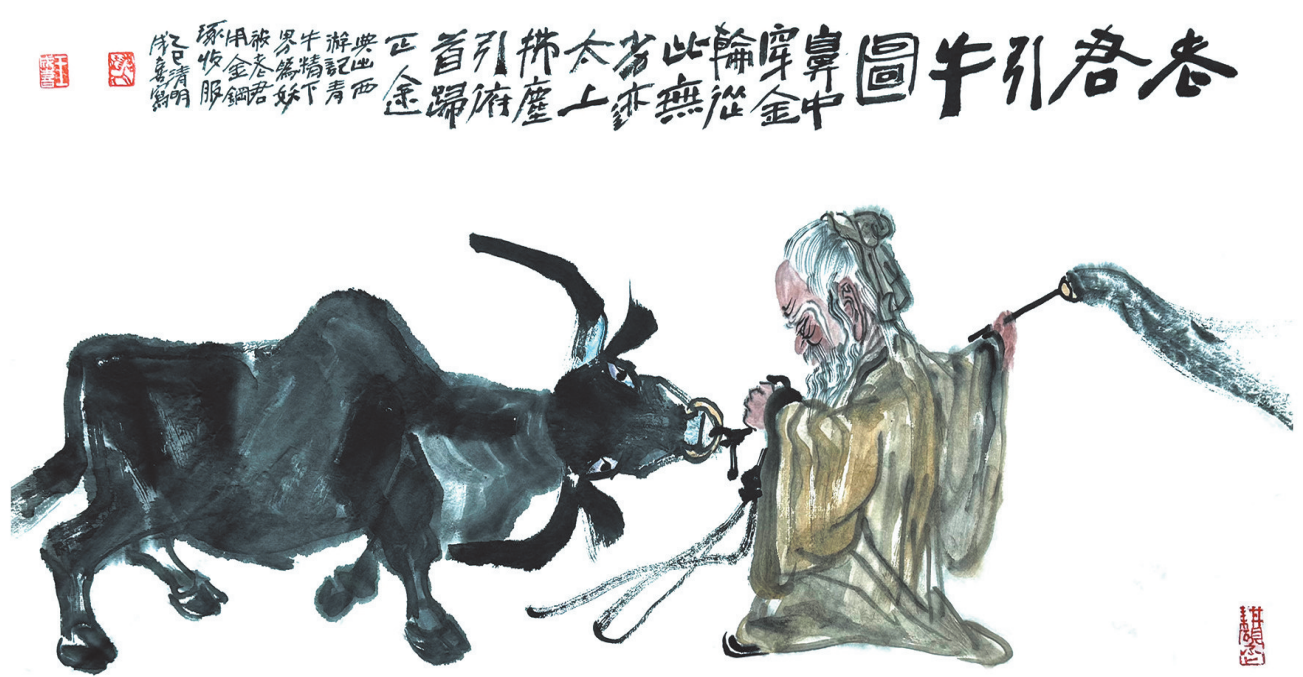 老君引牛圖
鼻中
穿金
輪從
此無
劣迹
太上
拂塵
引俯
首歸
正途
典出西
游記青
牛精下
界爲妖
被老君
用金鋼
琢收服
乙巳清明
成喜寫